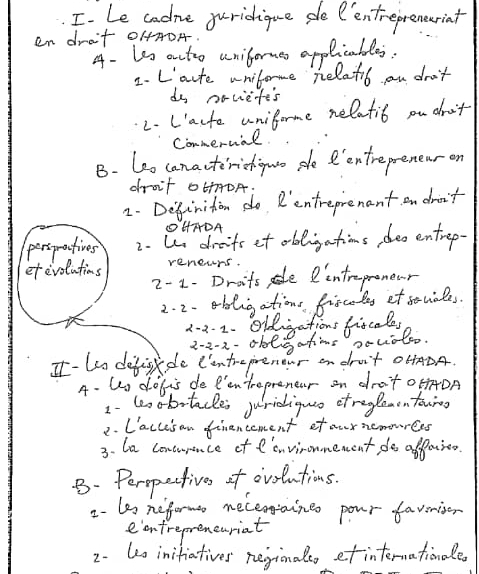 I- Le cadre juridique de l'entrepreneuriat
en droit OHADA.
A- Les actes uniformes applicables.
1- L'acte uniforme relatif au droit
des sociétés
2- L'acte uniforme relatif au droit
Commercial.
B- Les caractéristiques de l'entrepreneur en
droit OHADA.
1- Définition de l'entreprenant en droit
OHADA
2- Les droits et obligations des entrep-
reneurs.
2-1- Droits de l'entrepreneur
2-2- obligations fiscales et sociales.
2-2-1- Obligations fiscales
2-2-2- obligations sociales.
perspectives
et évolutions
II- Les défis de l'entrepreneur en droit OHADA.
A- Les défis de l'entrepreneur en droit OHADA
1- les obstacles juridiques et reglementaires
2- L'accès au financement et aux ressources
3- La concurence et l'environnement des affaires.
B- Perspectives et évolutions.
1- Les réformes nécessaires pour favoriser
l'entrepreneuriat
2- Les initiatives régionales et internationales